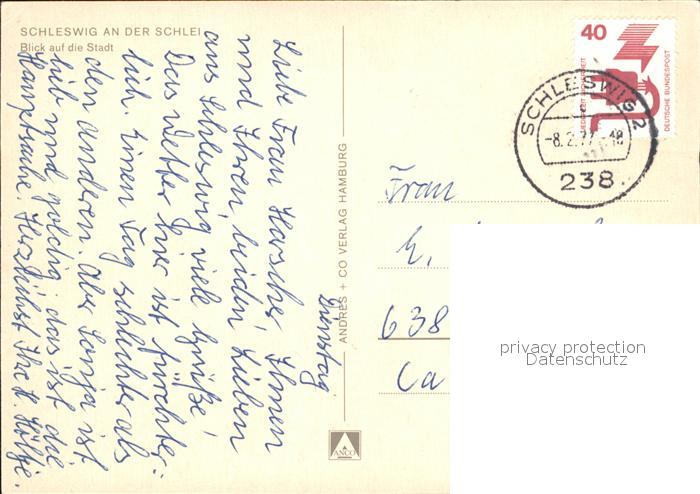 SCHLESWIG AN DER SCHLEI
Blick auf die Stadt
Dienstag.
Liebe Frau Harscher, Ihnen
und Ihren beiden Lieben
aus Schleswig viele Grüße!
Das Wetter hier ist fürchter-
lich. Einen Tag schlechter als
den anderen. Aber Sonja ist
lieb und goldig, das ist die
Hauptsache. Herzlichst Ihre H. Höltje.
ANDRES + CO VERLAG HAMBURG
ANCO
40
JEDERZEIT SICHERHEIT
DEUTSCHE BUNDESPOST
SCHLESWIG 2
-8.2.77-18
238
Frau
638
privacy protection
Datenschutz